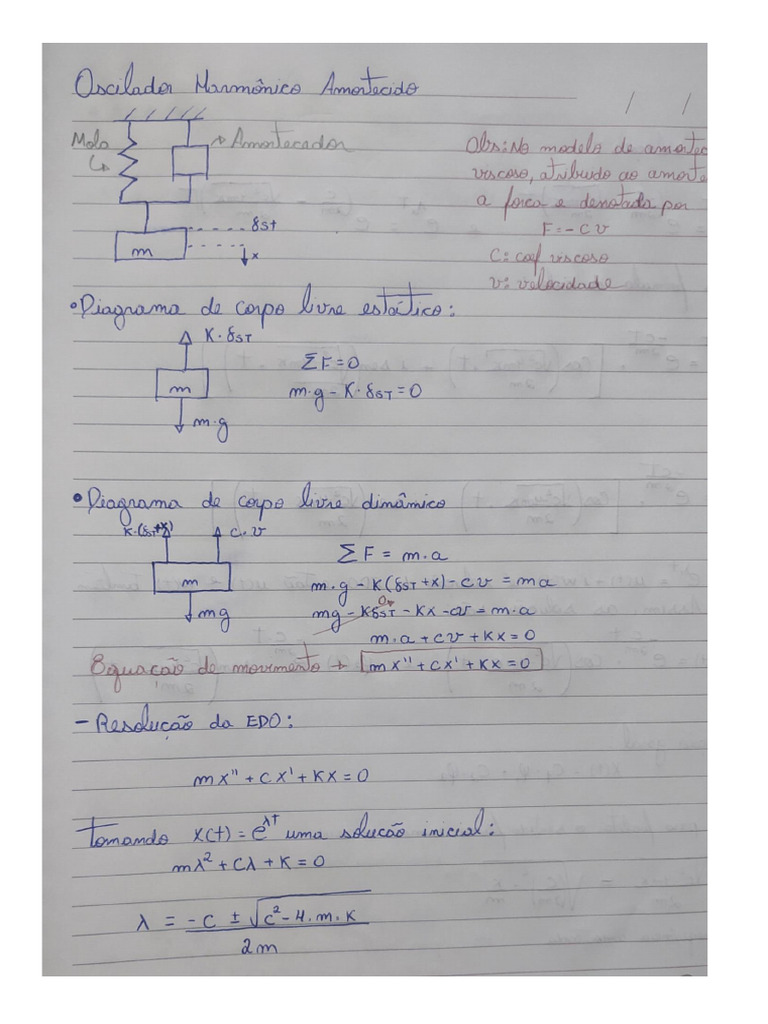 Oscilador Harmônico Amortecido
/ /
Mola
Amortecedor
Obs: No modelo de amortec
viscoso, atribuido ao amorte
a força e denotada por
F = - C v
C: coef viscoso
v: velocidade
δst
m
x
• Diagrama de corpo livre estático:
K·δST
m
m·g
ΣF = 0
m·g - K·δST = 0
• Diagrama de corpo livre dinâmico
K·(δST+x)
c·v
m
mg
ΣF = m.a
m.g - K(δST + x) - cv = ma
0
mg - KδST - Kx - cv = m.a
m.a + cv + Kx = 0
Equação de movimento → mx'' + cx' + Kx = 0
- Resolução da EDO:
mx'' + cx' + Kx = 0
Tomando x(t) = e^λt uma solução inicial:
mλ² + cλ + K = 0
λ = -c ± √c² - 4.m.K
2m